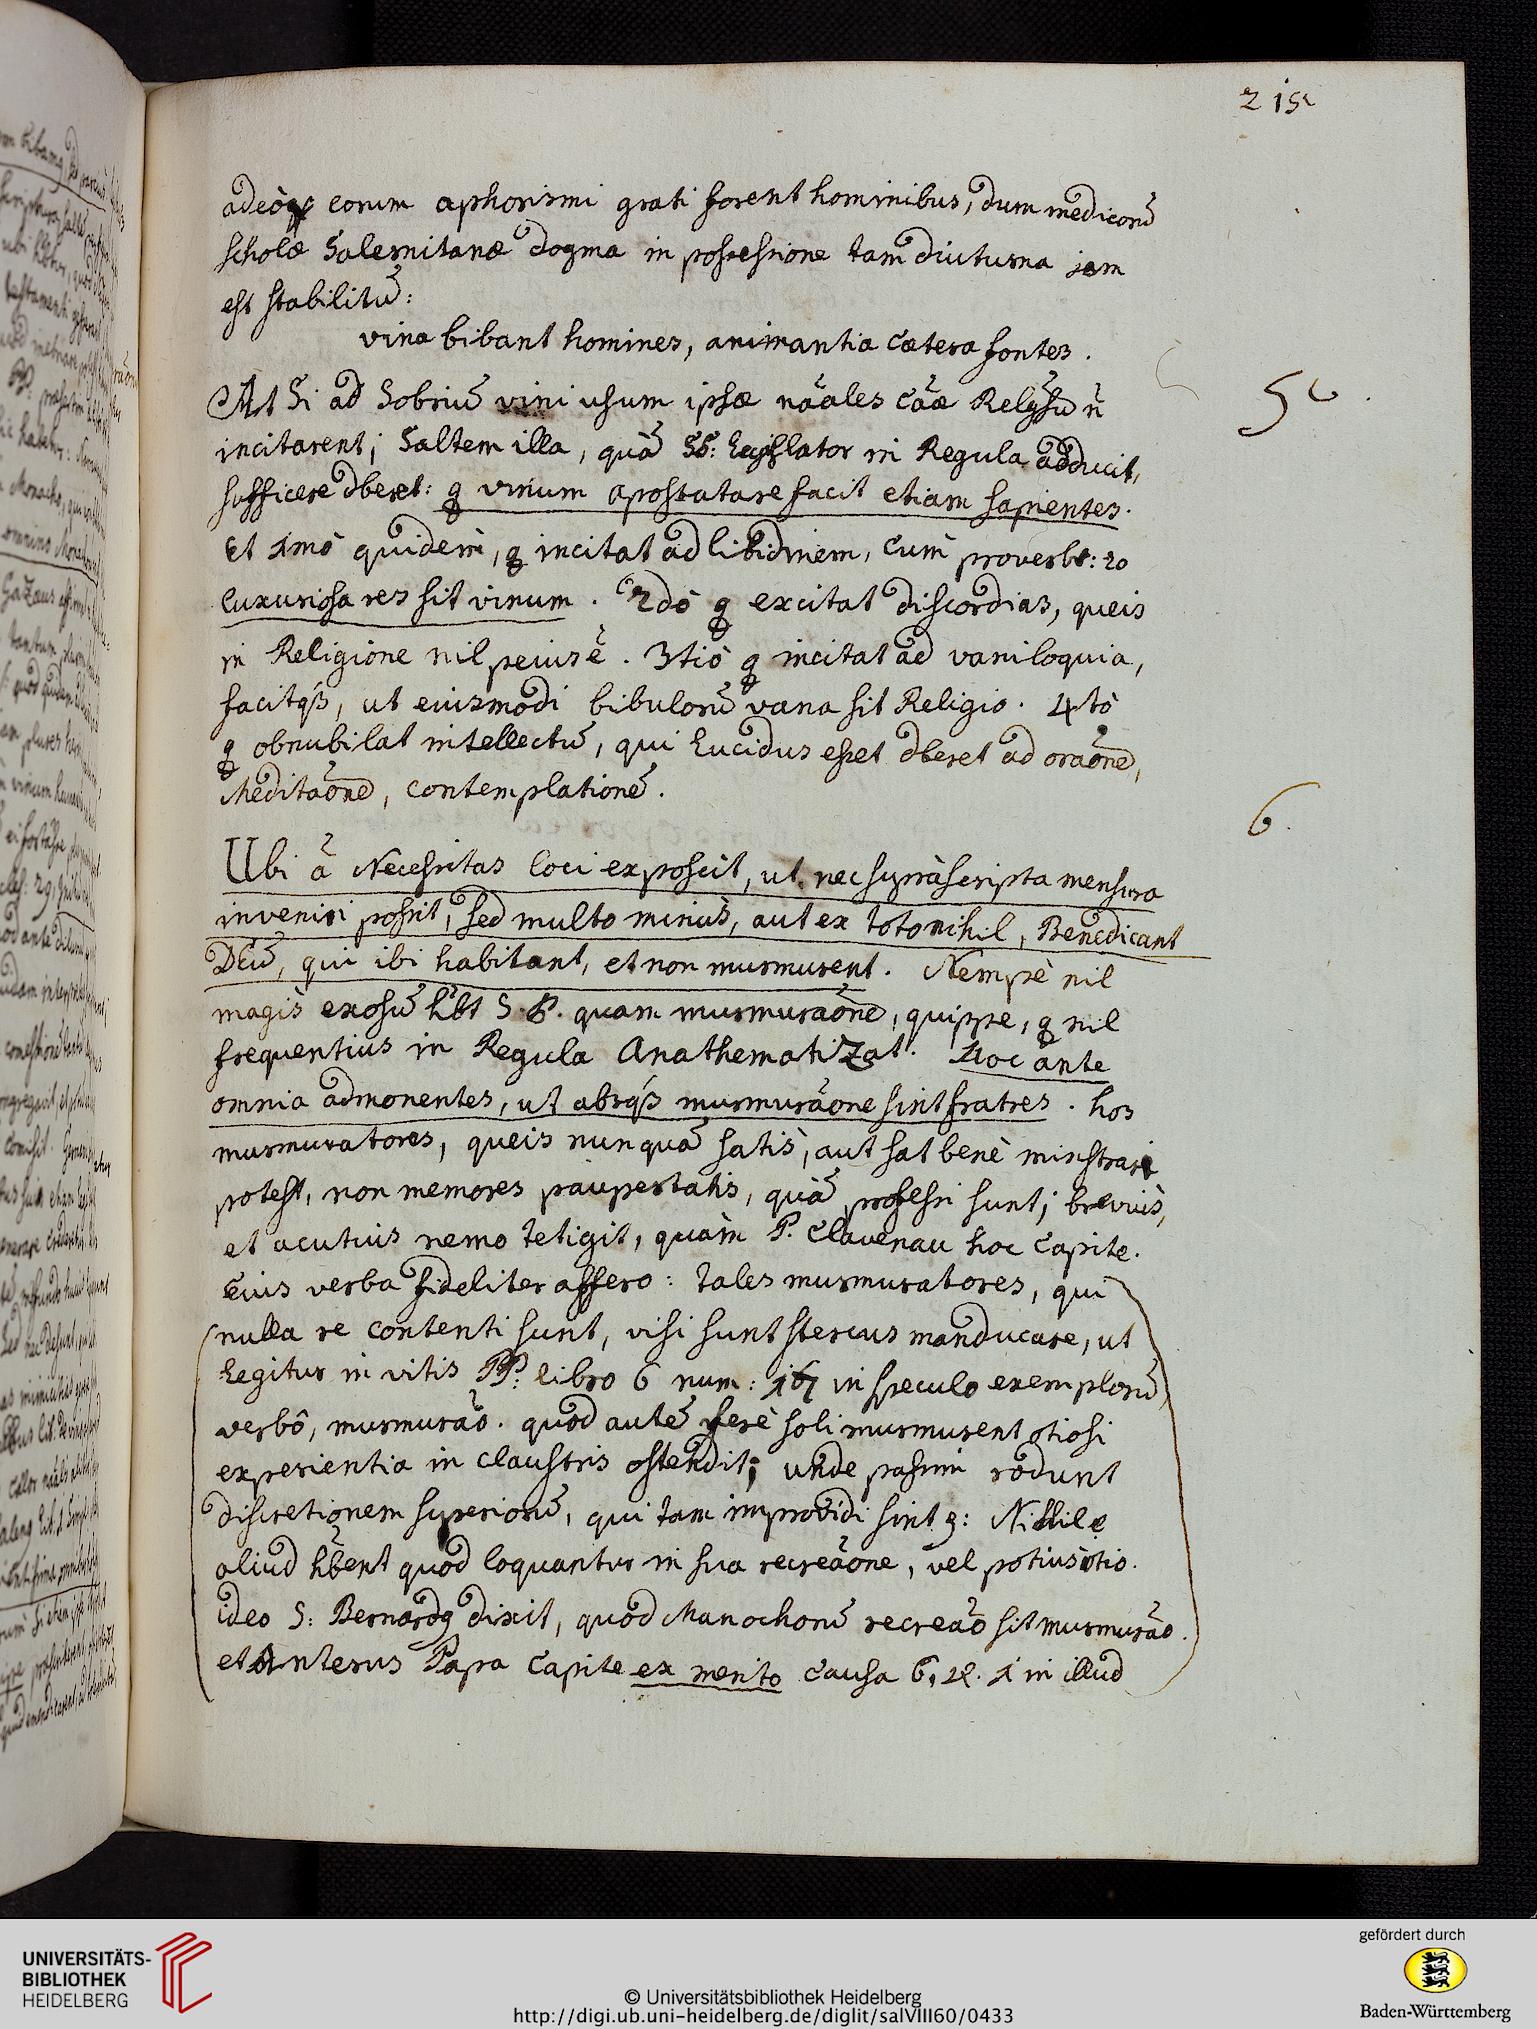 215
adeòq3 eorum aphorismi grati forent hominibus, dum medicorũ
scholæ Salernitanæ dogma in possessione tam diuturna jam
est stabilitũ:
vina bibant homines, animantia cætera fontes.
5
At Si ad Sobriũ vini usum ipsæ nãales cãæ Relgsũ ñ
incitarent; Saltem illa, quã SS: Legislator in Regula adducit,
sufficere dberet: q vinum apostatare facit etiam sapientes.
Et 1mò quidem, q incitat ad libidinem, cum proverb: 20
Luxuriosa res sit vinum. 2dò q excitat discordias, queis
in Religione nil peius ẽ. 3tiò q incitat ad vaniloquia,
facitq3, ut eiusmodi bibulorũ vana sit Religio. 4tò
q obnubilat intellectũ, qui Lucidus esset dberet ad oraõne,
Meditaõne, contemplationẽ.
6.
Ubi ã Necessitas loci exposcit, ut nec supràscripta mensura
inveniri possit, sed multo minùs, aut ex toto nihil, Benedicant
DEũ, qui ibi habitant, et non murmurent. Nempè nil
magis exosũ hbt S. P. quam murmuraõne, quippe, q nil
frequentius in Regula Anathematizat. Hoc ante
omnia admonentes, ut absq3 murmurãone sint fratres. hos
murmuratores, queis nunquã satis, aut sat benè minstrari
potest, non memores paupertatis, quã professi sunt; breviùs,
et acutius nemo tetigit, quàm P. Clavenau hoc capite.
Eius verba fideliter affero: tales murmuratores, qui
nulla re contenti sunt, visi sunt stercus manducare, ut
Legitur in vitis PP: libro 6 num: 167 in speculo exemplorũ
verbô, murmurão. quod autẽ ferè soli murmurent otiosi
experientia in claustris ostendit; unde passim rodunt
discretionem superiorũ, qui tam improvidi sint q: Nihil e
aliud hbent quod loquantur in sua recreãone, vel potius otio.
ideo S: Bernardq dixit, quod Monachorũ recreão sit murmurão.
et Anterus Papa Capite ex merito causa 6, q. 1 in illud
UNIVERSITÄTS-
BIBLIOTHEK
HEIDELBERG
© Universitätsbibliothek Heidelberg
http://digi.ub.uni-heidelberg.de/diglit/salVIII60/0433
gefördert durch
Baden-Württemberg